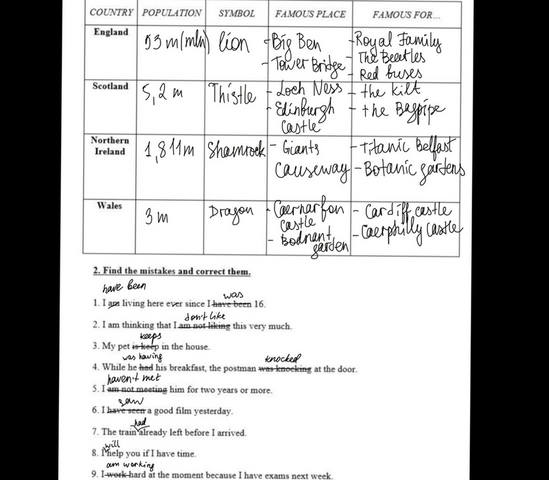 COUNTRY POPULATION SYMBOL FAMOUS PLACE FAMOUS FOR...
England 53 m(mln) lion - Big Ben - Royal Family
- Tower Bridge - The Beetles
- Red buses
Scotland 5,2 m Thistle - Loch Ness - the kilt
- Edinburgh - the Bagpipe
Castle
Northern Ireland 1,811m Shamrock - Giants - Titanic Belfast
Causeway - Botanic gardens
Wales 3 m Dragon - Caernarfon - Cardiff castle
castle - Caerphilly castle
- Bodnant garden
2. Find the mistakes and correct them.
have been was
1. I am living here ever since I have been 16.
don't like
2. I am thinking that I am not liking this very much.
keeps
3. My pet is keep in the house.
was having knocked
4. While he had his breakfast, the postman was knocking at the door.
haven't met
5. I am not meeting him for two years or more.
saw
6. I have seen a good film yesterday.
had
7. The train already left before I arrived.
will
8. I help you if I have time.
am working
9. I work hard at the moment because I have exams next week.